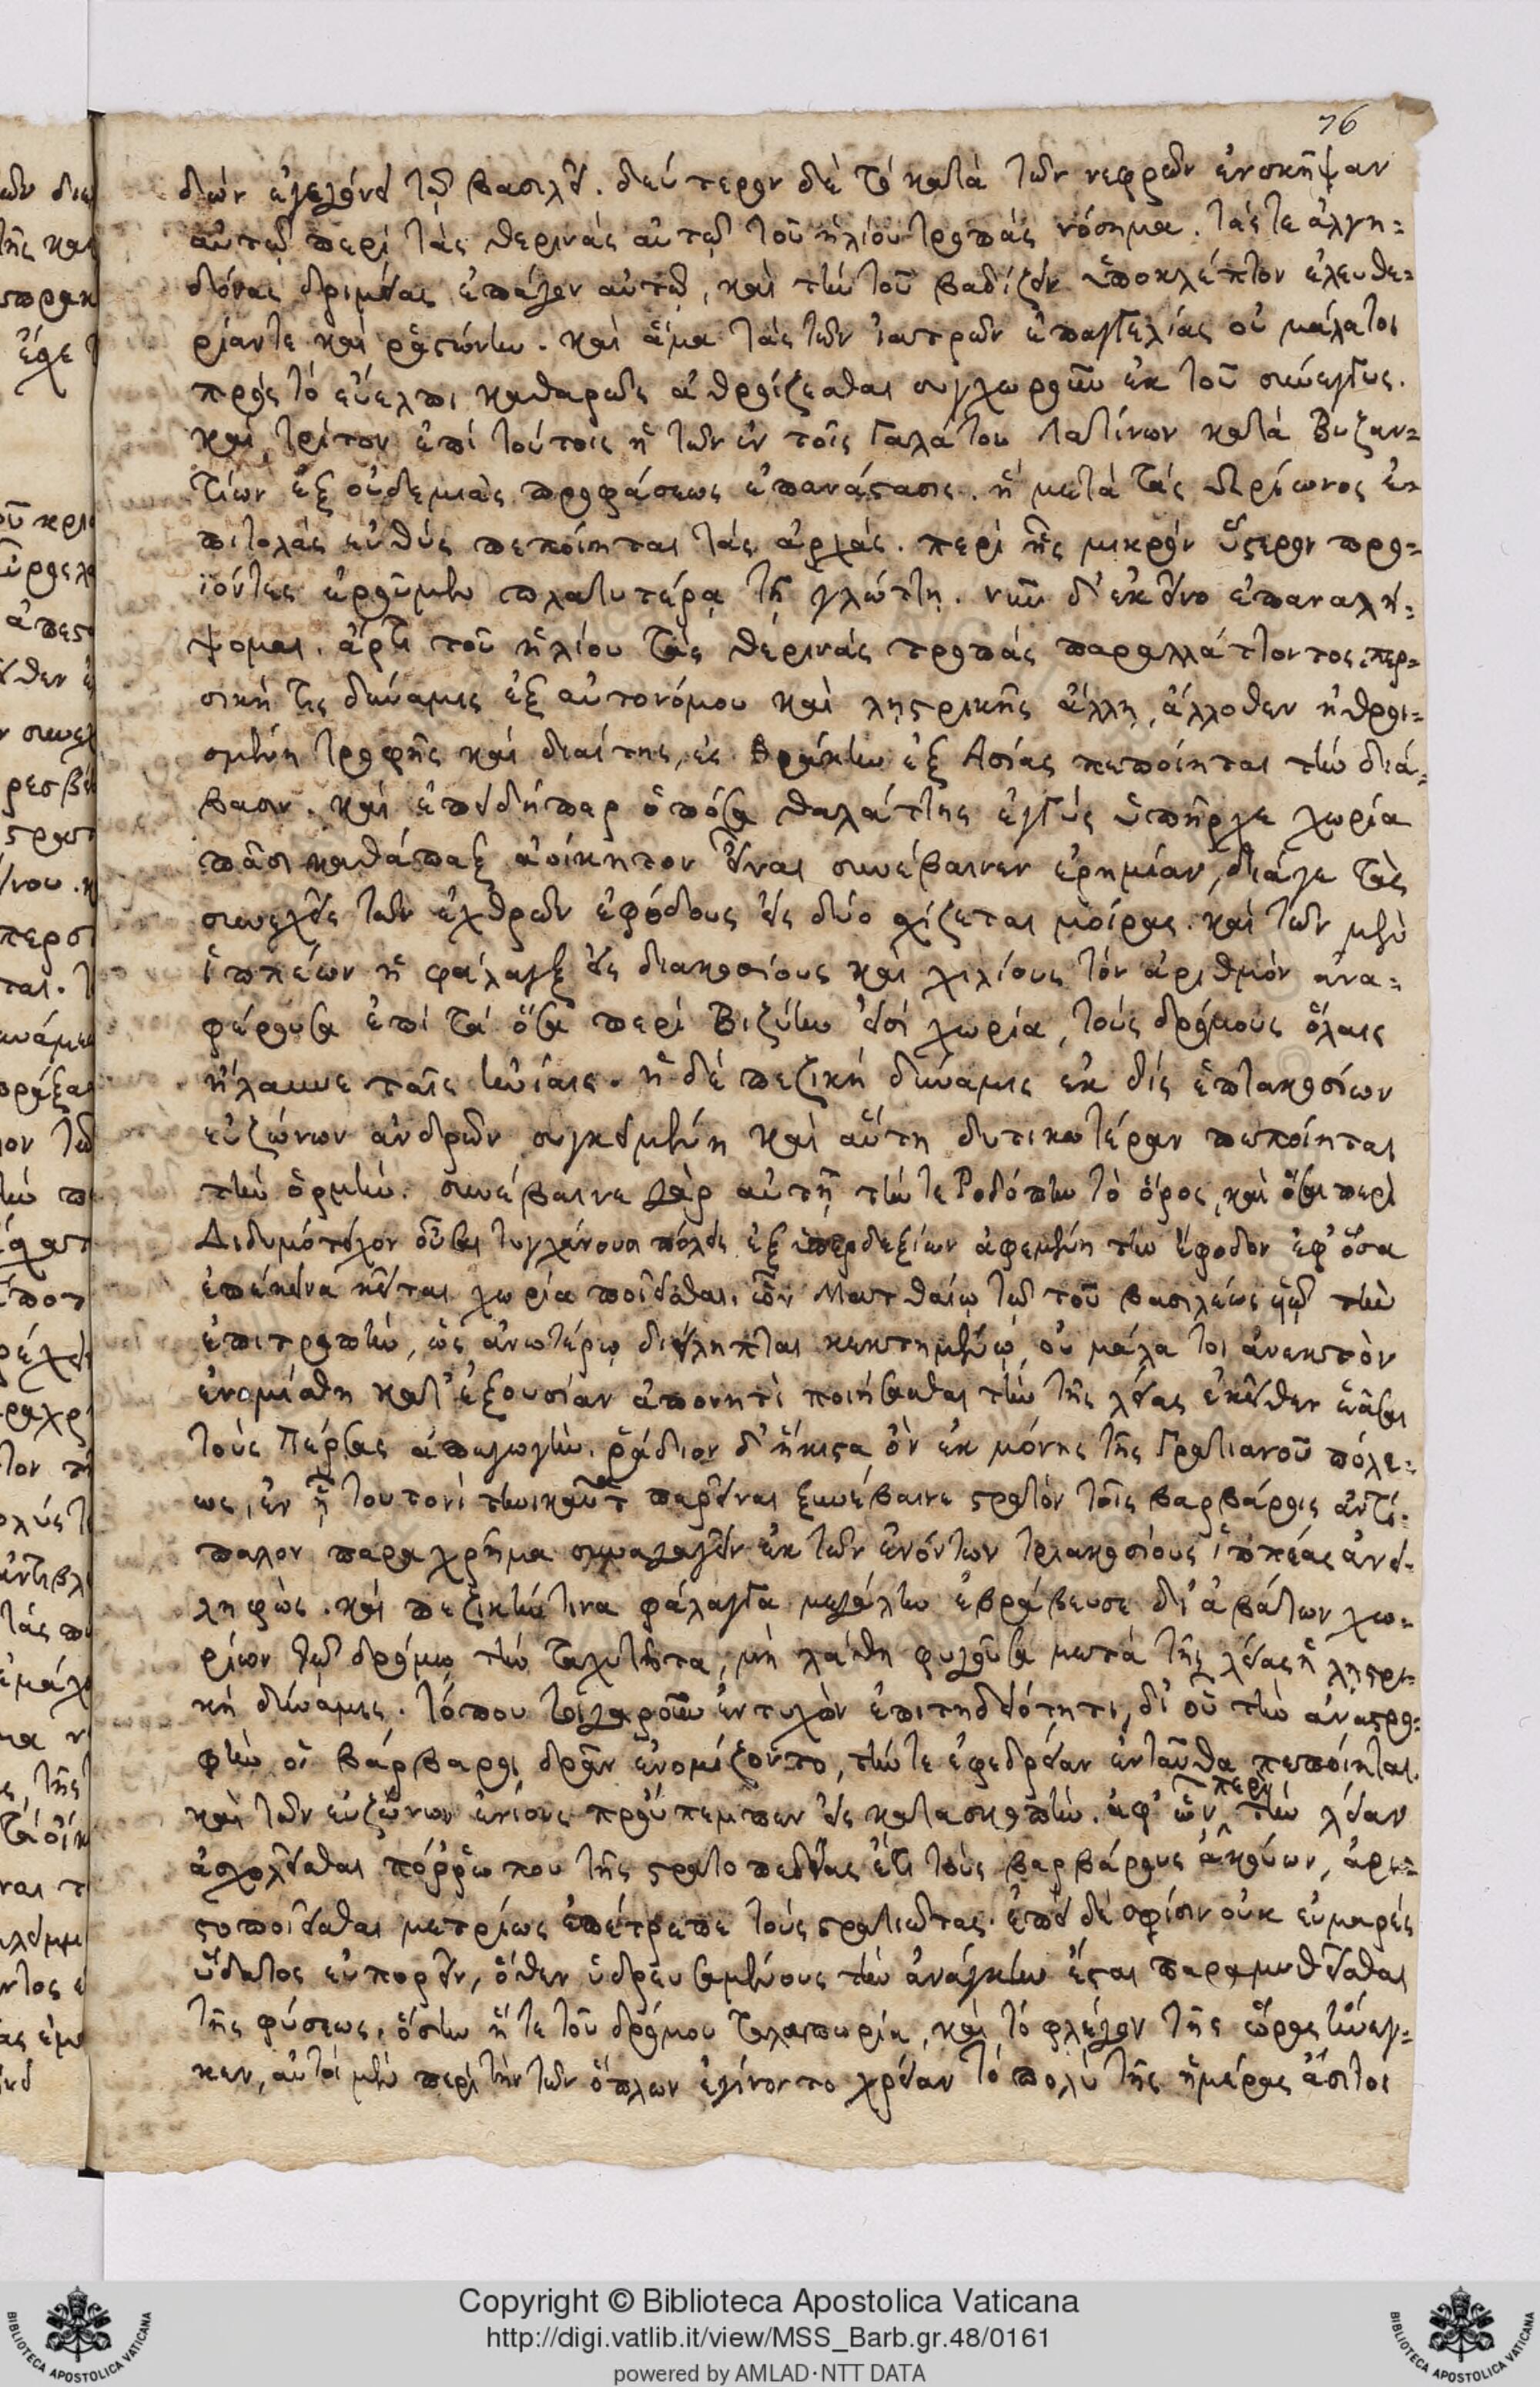 76
διὼν ἐγεγόνει τῷ βασιλεῖ. δεύτερον δὲ τὸ κατὰ τῶν νεφρῶν ἐνσκῆψαν
αὐτῷ περὶ τὰς θερινὰς αὐτῷ τοῦ ἡλίου τροπὰς νόσημα. τάς τε ἀλγη-
δόνας δριμείας ἐπάγον αὐτῷ, καὶ τὴν τοῦ βαδίζειν ὑποκλέπτον ἐλευθε-
ρίαν τε καὶ ῥᾳστώνην. καὶ ἅμα τὰς τῶν ἰατρῶν ἐπαγγελίας οὐ μάλα τοι
πρὸς τὸ εὔελπι καθαρῶς ἀθροίζεσθαι συγχωροῦν ἐκ τοῦ σύνεγγυς.
καὶ τρίτον ἐπὶ τούτοις ἡ τῶν ἐν τοῖς Γαλάτου Λατίνων κατὰ Βυζαν-
τίων ἐξ οὐδεμιᾶς προφάσεως ἐπανάστασις. ἣ μετὰ τὰς ὠρίωνος ἐ-
πιτολὰς εὐθὺς πεποίηται τὰς ἀρχάς. περὶ ἧς μικρὸν ὕστερον προ-
ϊόντες ἐροῦμεν πλατυτέρᾳ τῇ γλώττῃ. νῦν δ' ἐκεῖνο ἐπαναλή-
ψομαι. ἄρτι τοῦ ἡλίου τὰς θερινὰς τροπὰς παραλλάττοντος, περ-
σική τις δύναμις ἐξ αὐτονόμου καὶ λῃστρικῆς ἄλλη ἄλλοθεν ἠθροι-
σμένη τροφῆς καὶ διαίτης, ἐς Θράκην ἐξ Ἀσίας πεποίηται τὴν διά-
βασιν. καὶ ἐπειδήπερ ὁπόσα θαλάττης ἐγγὺς ὑπῆρχε χωρία
πᾶσι καθάπαξ ἀοίκητον εἶναι συνέβαινεν ἐρημίαν, διά γε τὰς
συνεχεῖς τῶν ἐχθρῶν ἐφόδους εἰς δύο σχίζεται μοίρας. καὶ τῶν μὲν
ἱππέων ἡ φάλαγξ εἰς διακοσίους καὶ χιλίους τὸν ἀριθμὸν ἀνα-
φέρουσα ἐπὶ τὰ ὅσα περὶ Βιζύην εἰσὶ χωρία, τοὺς δρόμους ὅλαις
ἤλαυνε ταῖς ἡνίαις. ἡ δὲ πεζικὴ δύναμις ἐκ δὶς ἑπτακοσίων
εὐζώνων ἀνδρῶν συγκειμένη καὶ αὕτη δυτικωτέραν πεποίηται
τὴν ὁρμήν. συνέβαινε γὰρ αὐτῇ τήν τε Ῥοδόπην τὸ ὄρος, καὶ ὅσαι περὶ
Διδυμότειχον οὖσαι τυγχάνουσι πόλεις ἐξ ὑπερδεξίων ἀφεμένῃ τὴν ἔφοδον ἐφ' ὅσα
ἐπέκεινα κεῖται χωρία ποιεῖσθαι. ὧν Ματθαίῳ τῷ τοῦ βασιλέως υἱῷ τὴν
ἐπιτροπὴν, ὡς ἀνωτέρω διείληπται κεκτημένῳ, οὐ μάλα τοι ἀνεκτὸν
ἐνομίσθη κατ' ἐξουσίαν ἀπονητὶ ποιήσασθαι τὴν τῆς λείας ἐκεῖθεν ἐᾶσαι
τοὺς Πέρσας ἀπαγωγήν. ῥᾴδιον δ' ἥκιστα ὂν ἐκ μόνης τῆς Γρατιανοῦ πόλε-
ως, ἐν ᾗ τουτονὶ τηνικαῦτ παρεῖναι ξυνέβαινε στρατὸν τοῖς βαρβάροις ἀντί-
παλον παραχρῆμα συναγαγεῖν ἐκ τῶν ἐνόντων τριακοσίους ἱππέας ἀνει-
ληφὼς. καὶ πεζικήν τινα φάλαγγα μεγάλην ἐβράβευσε δι' ἀβάτων χω-
ρίων τῷ δρόμῳ τὴν ταχυτῆτα, μὴ λάθῃ φυγοῦσα μετὰ τῆς λείας ἡ λῃστρι-
κὴ δύναμις. τόπου τοιγαροῦν ἐντυχὼν ἐπιτηδειότητι, δι' οὗ τὴν ἀναστρο-
φὴν οἱ βάρβαροι δρᾶν ἐνομίζοντο, τήν τε ἐφεδρείαν ἐνταῦθα πεποίηται.
καὶ τῶν εὐζώνων ἐνίους προὔπεμπεν εἰς κατασκοπήν. ἀφ' ὧν περὶ τὴν λείαν
ἀσχολεῖσθαι πόῤῥω που τῆς στρατοπεδείας ἔτι τοὺς βαρβάρους ἀκούων, ἀρι-
στοποιεῖσθαι μετρίως ἐπέτρεπε τοὺς στρατιώτας. ἐπεὶ δὲ σφίσιν οὐκ εὐμαρὲς
ὕδατος εὐπορεῖν, ὅθεν ὑδρευσαμένους τὴν ἀνάγκην ἔσται παραμυθεῖσθαι
τῆς φύσεως, ὅσην ἥ τε τοῦ δρόμου ταλαιπωρία, καὶ τὸ φλέγον τῆς ὥρας ἤνεγ-
κεν, αὐτοὶ μὲν περὶ τὴν τῶν ὅπλων ἐγίνοντο χρείαν τὸ πολὺ τῆς ἡμέρας ἄσιτοι
Copyright © Biblioteca Apostolica Vaticana
http://digi.vatlib.it/view/MSS_Barb.gr.48/0161
powered by AMLAD·NTT DATA
BIBLIOTECA APOSTOLICA VATICANA
BIBLIOTECA APOSTOLICA VATICANA